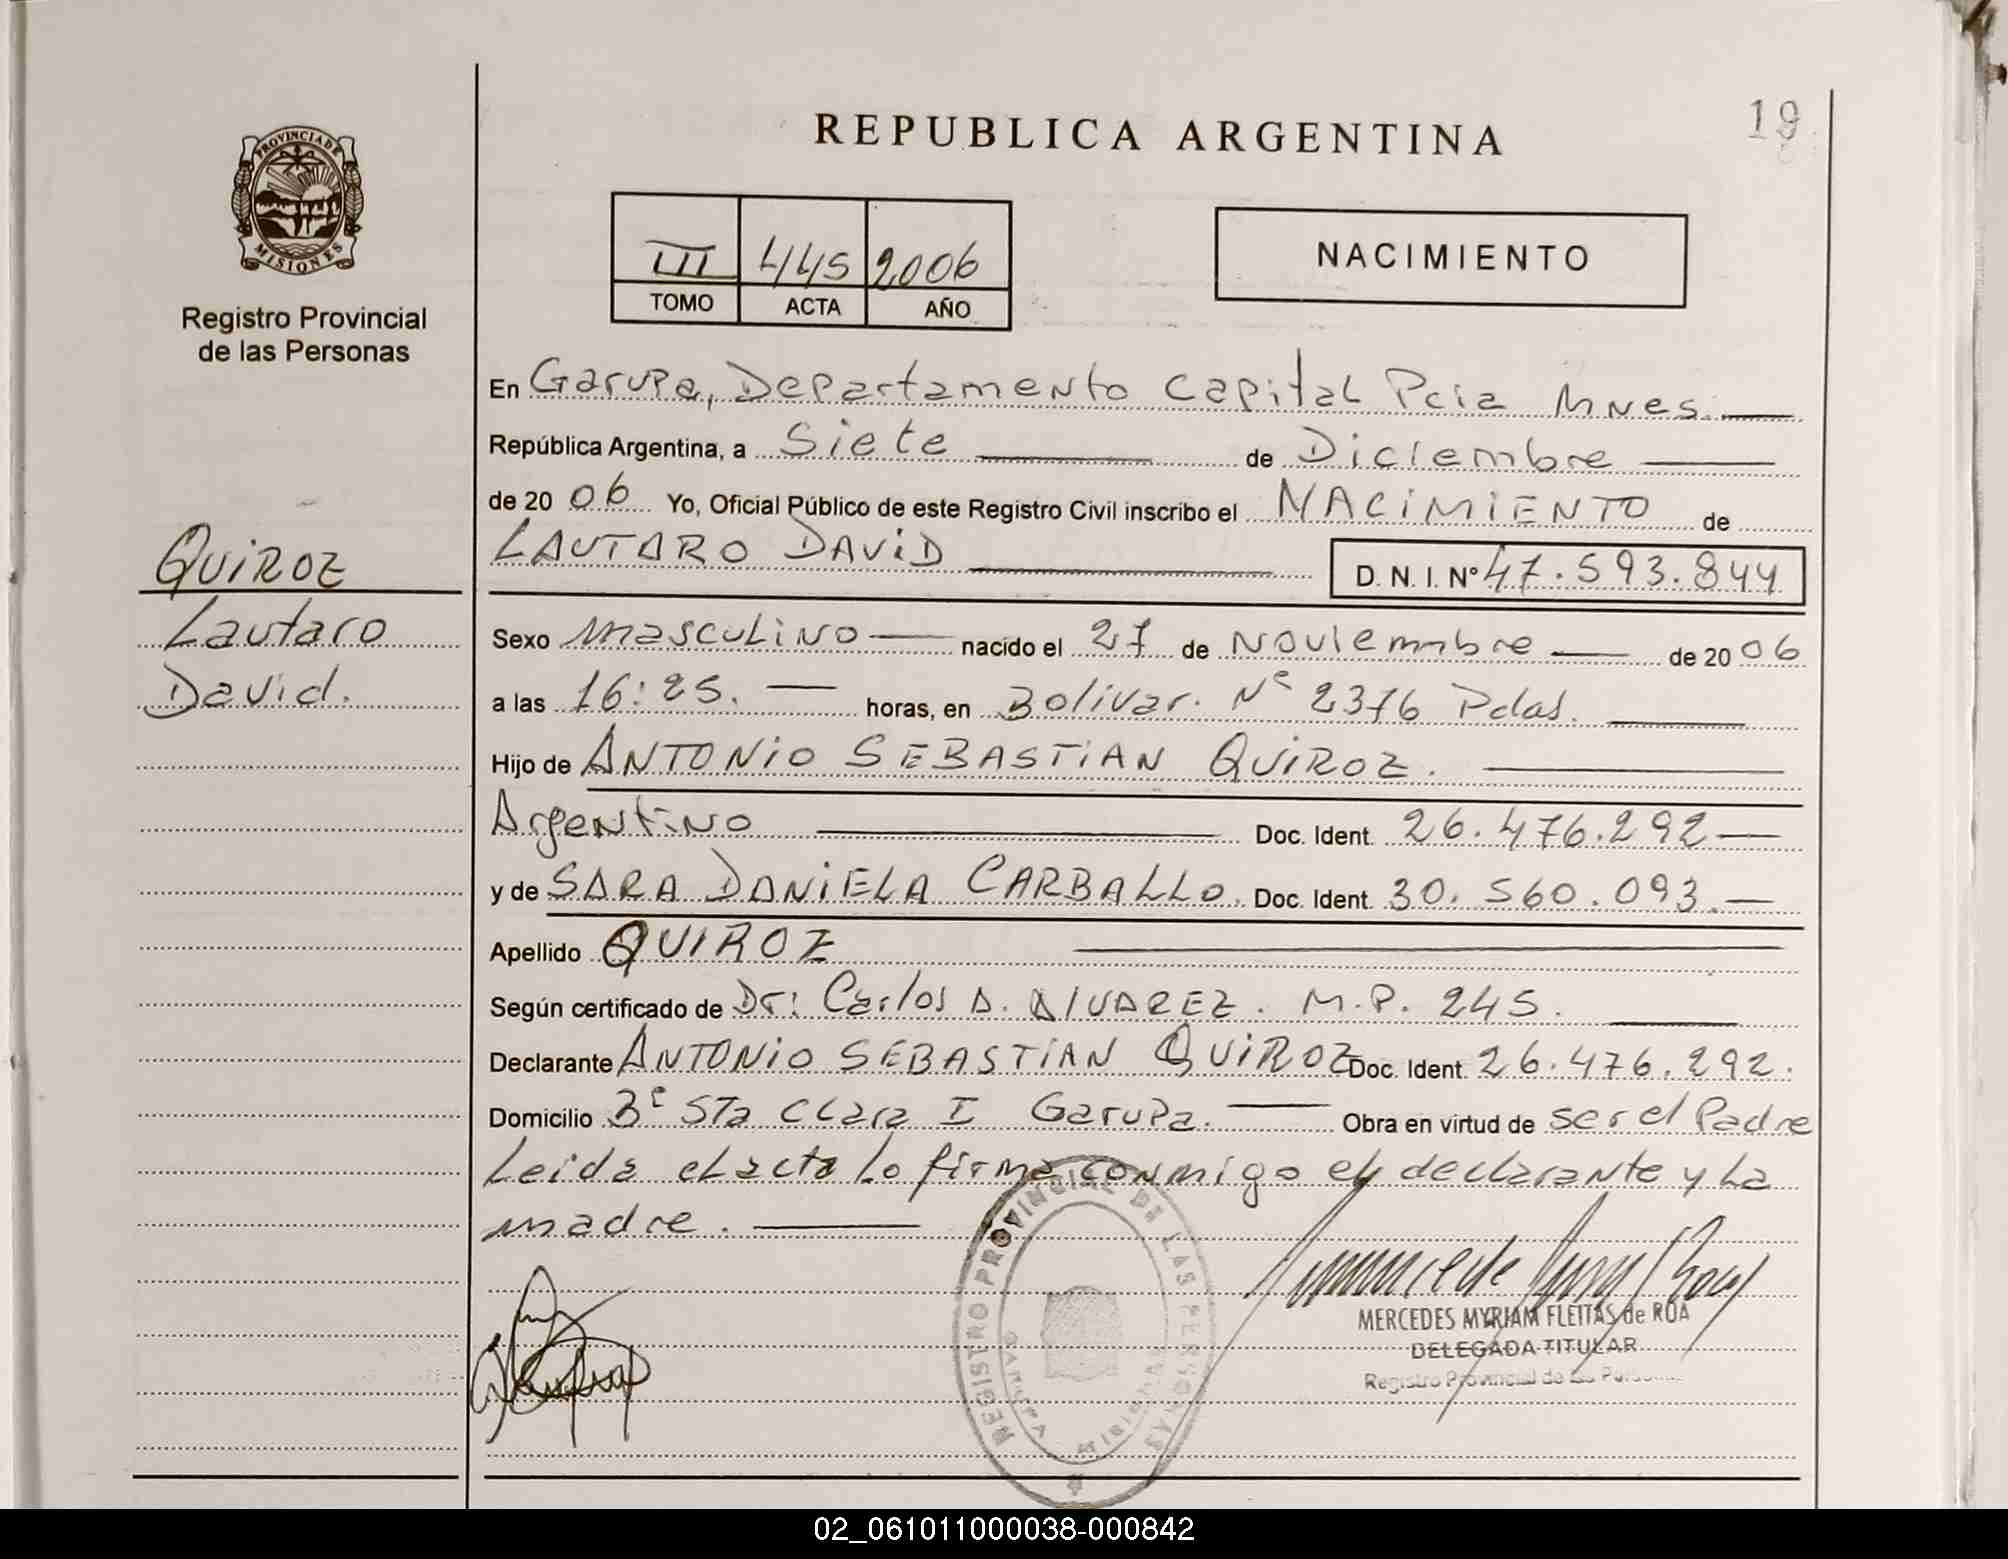 REPUBLICA ARGENTINA
19
PROVINCIA DE
MISIONES
Registro Provincial
de las Personas
III 445 2006
TOMO ACTA AÑO
NACIMIENTO
En Garupa, Departamento Capital Pcia Mnes.
República Argentina, a Siete de Diciembre
de 20 06 Yo, Oficial Público de este Registro Civil inscribo el NACIMIENTO de
LAUTARO DAVID D.N.I. Nº 47.593.844
QUIROZ
Lautaro
David.
Sexo masculino nacido el 27 de Noviembre de 20 06
a las 16:25. horas, en Bolivar. Nº 2376 Pdas.
Hijo de ANTONIO SEBASTIAN QUIROZ.
Argentino Doc. Ident. 26.476.292
y de SARA DANIELA CARBALLO. Doc. Ident. 30.560.093.
Apellido QUIROZ
Según certificado de Dr: Carlos A. ALVAREZ. M.P. 245.
Declarante ANTONIO SEBASTIAN QUIROZ Doc. Ident. 26.476.292.
Domicilio Bº STa Clara I Garupa. Obra en virtud de ser el Padre
Leida el acta lo firma conmigo el declarante y la
madre.
REGISTRO PROVINCIAL DE LAS PERSONAS
MERCEDES MYRIAM FLEITAS de ROA
DELEGADA TITULAR
Registro Provincial de las Personas
02_061011000038-000842